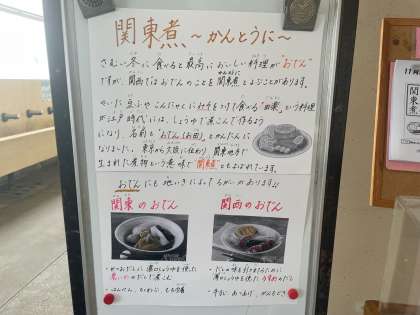 関東煮 ～かんとうに～
さむい冬に食べると最高においしい料理が"おでん"
ですが、関西ではおでんのことを関東煮とよぶことがあります。
かんとうに
やいた豆ふやこんにゃくにみそをつけて食べる"田楽"という料理
が江戸時代には、しょうゆで煮こんで作るよう
になり、名前も"おでん(お田)"とかんたんに
なりました。東京から大阪に伝わり 関東地方で
生まれた煮物という意味で"関東煮"ともよばれています。
おでんにも地いきによってちがいがあります!!
関東のおでん
関西のおでん
・かつおだしに濃口しょうゆを使った
黒いめのだしで煮こむ
・はんぺん、ちくわぶ、もち巾着
・だしの味を引き立てるために
うすめのだし
・牛すじ
関東煮